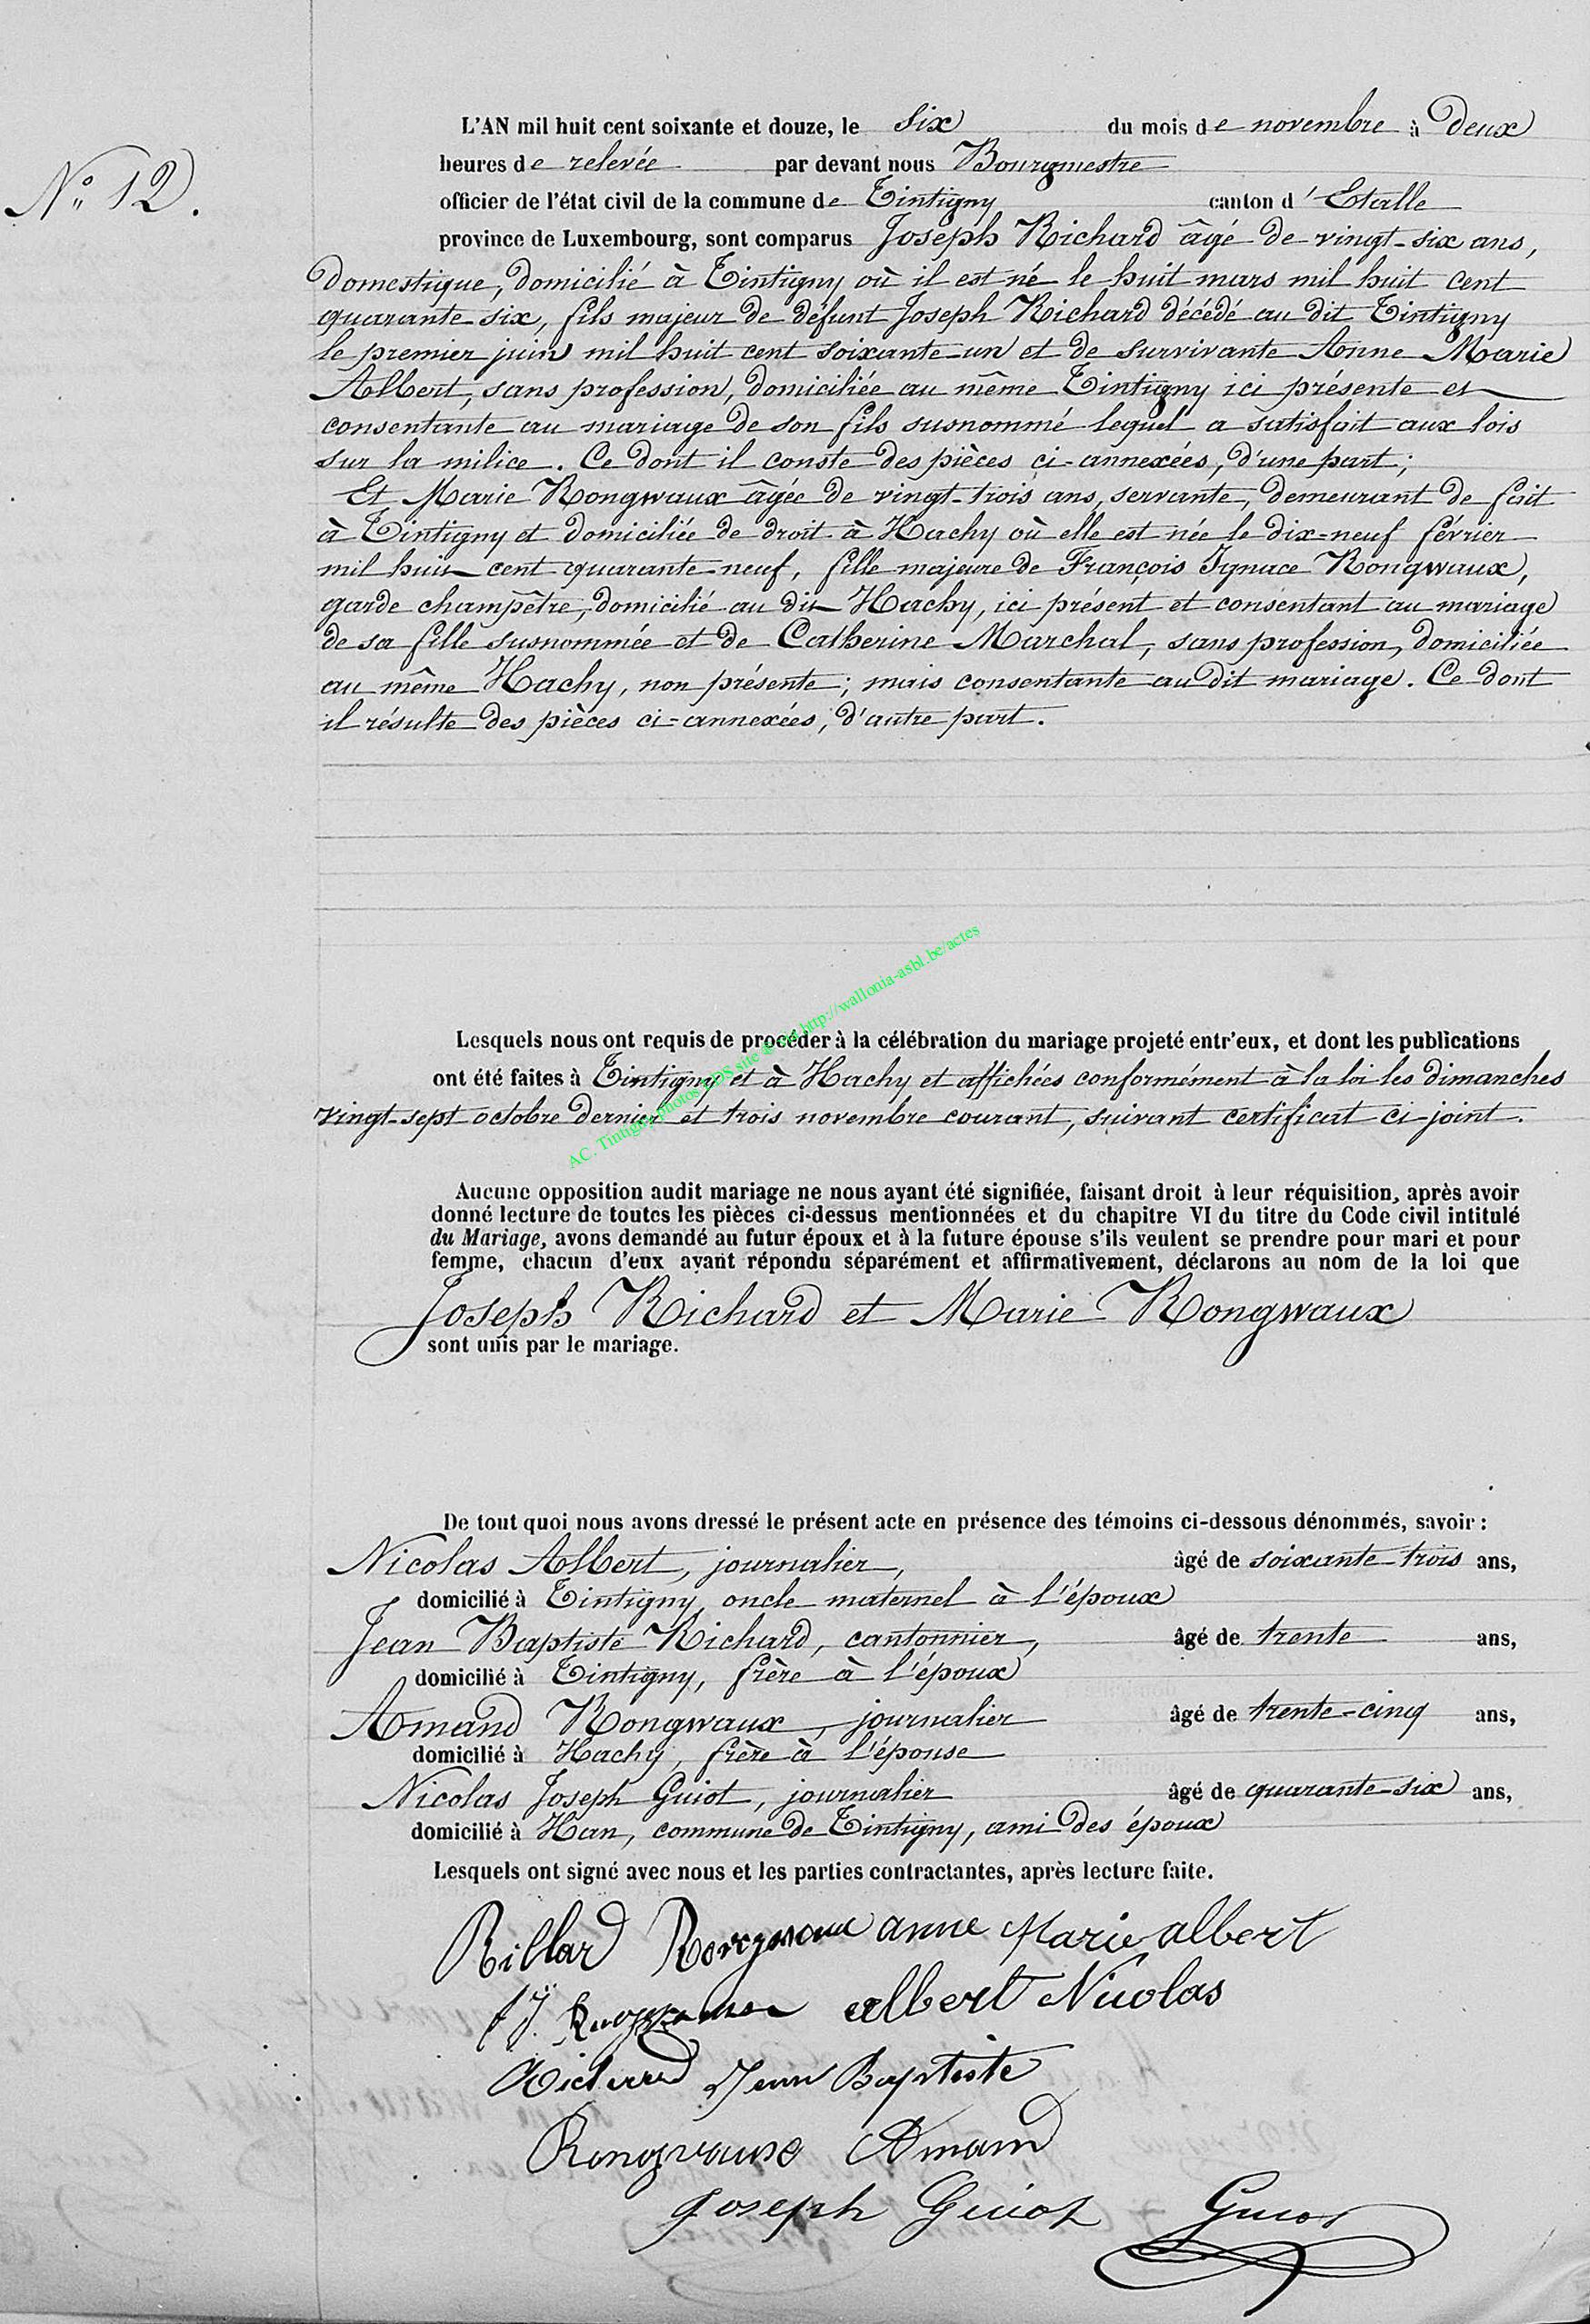 N° 12.
L'AN mil huit cent soixante et douze, le six du mois de novembre à Deux
heures de relevée par devant nous Bourgmestre
officier de l'état civil de la commune de Tintigny canton d'Etalle
province de Luxembourg, sont comparus Joseph Richard âgé de vingt-six ans,
Domestique, Domicilié à Tintigny où il est né le huit mars mil huit cent
quarante six, fils majeur de défunt Joseph Richard décédé au dit Tintigny
le premier juin mil huit cent soixante-un et de survivante Anne Marie
Albert, sans profession, domiciliée au même Tintigny ici présente et
consentante au mariage de son fils susnommé lequel a satisfait aux lois
sur la milice. Ce dont il conste des pièces ci-annexées, d'une part;
Et Marie Rongwaux âgée de vingt-trois ans, servante, demeurant de fait
à Tintigny et domiciliée de droit à Hachy où elle est née le dix-neuf février
mil huit cent quarante-neuf, fille majeure de François Ignace Rongwaux,
garde champêtre, domicilié au dit Hachy, ici présent et consentant au mariage
de sa fille susnommée et de Catherine Marchal, sans profession, domiciliée
au même Hachy, non présente; mais consentante au dit mariage. Ce dont
il résulte des pièces ci-annexées, d'autre part.
AC. Tintigny photos LDS site à http://wallonia-asbl.be/actes
Lesquels nous ont requis de procéder à la célébration du mariage projeté entr'eux, et dont les publications
ont été faites à Tintigny et à Hachy et affichées conformément à la loi les dimanches
vingt-sept octobre dernier et trois novembre courant, suivant certificat ci-joint.
Aucune opposition audit mariage ne nous ayant été signifiée, faisant droit à leur réquisition, après avoir
donné lecture de toutes les pièces ci-dessus mentionnées et du chapitre VI du titre du Code civil intitulé
du Mariage, avons demandé au futur époux et à la future épouse s'ils veulent se prendre pour mari et pour
femme, chacun d'eux ayant répondu séparément et affirmativement, déclarons au nom de la loi que
Joseph Richard et Marie Rongwaux
sont unis par le mariage.
De tout quoi nous avons dressé le présent acte en présence des témoins ci-dessous dénommés, savoir :
Nicolas Albert, journalier, âgé de soixante-trois ans,
domicilié à Tintigny, oncle maternel à l'époux
Jean Baptiste Richard, cantonnier, âgé de trente ans,
domicilié à Tintigny, frère à l'époux
Amand Rongwaux, journalier âgé de trente-cinq ans,
domicilié à Hachy, frère à l'épouse
Nicolas Joseph Guiot, journalier âgé de quarante-six ans,
domicilié à Han, commune de Tintigny, ami des époux
Lesquels ont signé avec nous et les parties contractantes, après lecture faite.
anne Marie albert
albert Nicolas
Richard Jean Baptiste
Rongvaux Amand
Joseph Guiot